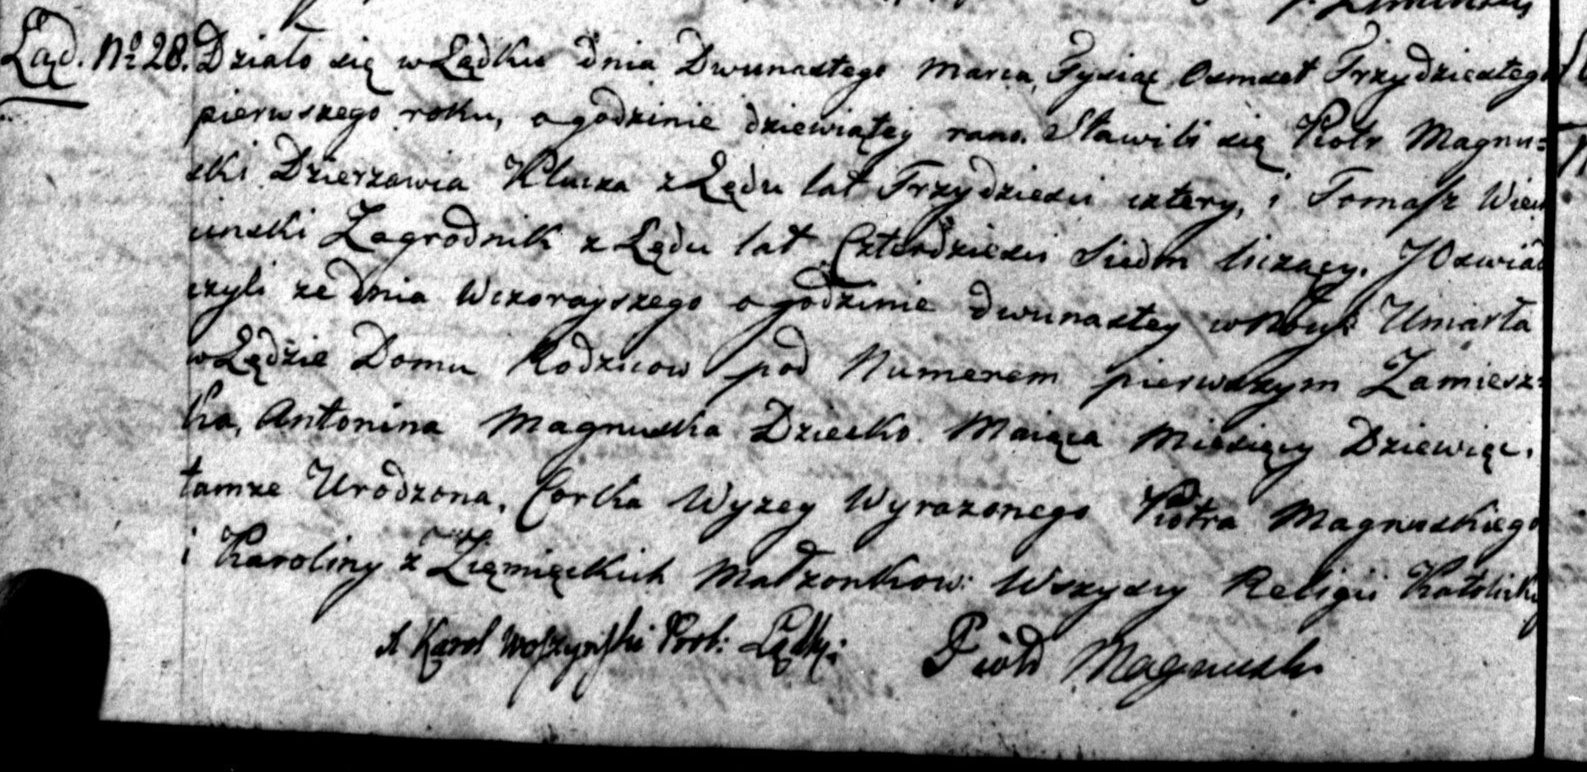 Ląd. No 28. Działo się w Lądku dnia Dwunastego Marca, Tysiąc Osmset Trzydziestego
pierwszego roku, o godzinie dziewiątey rano. Stawili się Piotr Magnu=
ski Dzierzawca Klucza z Lędu lat Trzydziesci cztery, i Tomasz Wiew
iunski Zagrodnik z Lędu lat Czterdziesci Siedm liczący. J Oswiad
czyli ze dnia Wczorayszego o godzinie dwunastey w nocy Umarła
w Lędzie Domu Rodzicow pod Numerem pierwszym Zamiesz=
ka, Antonina Magnuska Dziecko Maiąca Miesięcy Dziewięc.
tamze Urodzona, Corka Wyzey Wyrazonego Piotra Magnuskiego
i Karoliny z Zięmięckich Małzonkow: Wszyscy Religii Katolicky
X Karol Woszynski Prob: Lądk:
Piotr Magnuski